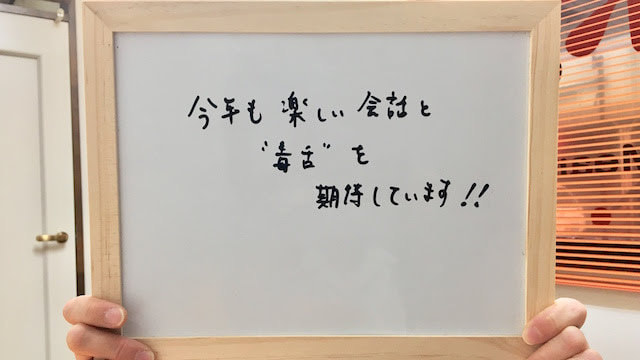 今年も楽しい会話と
“毒舌”を
期待しています!!